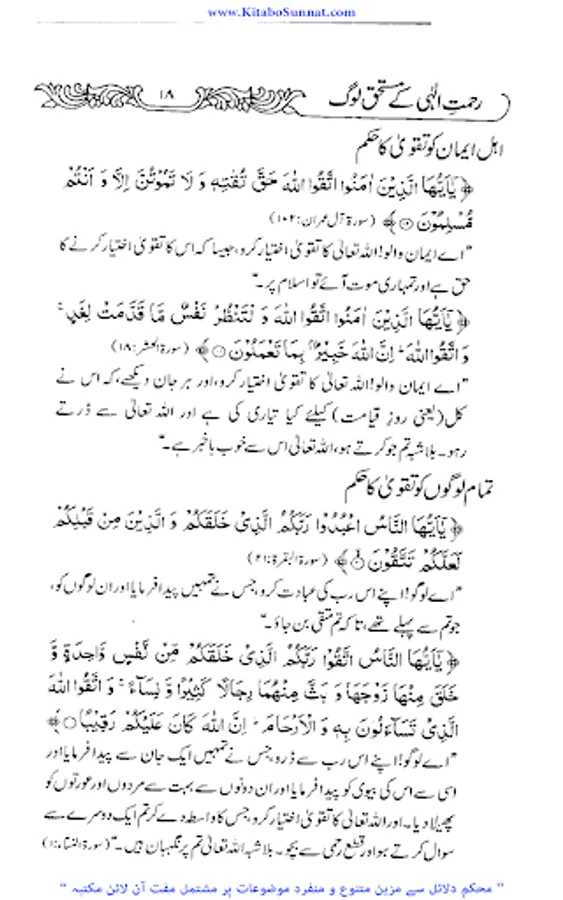 www.KitaboSunnat.com
رحمتِ الٰہی کے مستحق لوگ ۱۸
اہل ایمان کو تقویٰ کا حکم
﴿ يٰۤاَيُّهَا الَّذِيْنَ اٰمَنُوا اتَّقُوا اللّٰهَ حَقَّ تُقٰتِهٖ وَ لَا تَمُوْتُنَّ اِلَّا وَ اَنْتُمْ
مُّسْلِمُوْنَ ۝ ﴾ (سورۃ آل عمران:۱۰۲)
"اے ایمان والو! اللہ تعالیٰ کا تقویٰ اختیار کرو، جیسا کہ اس کا تقویٰ اختیار کرنے کا
حق ہے اور تمہاری موت آئے تو اسلام پر۔"
﴿ يٰۤاَيُّهَا الَّذِيْنَ اٰمَنُوا اتَّقُوا اللّٰهَ وَ لْتَنْظُرْ نَفْسٌ مَّا قَدَّمَتْ لِغَدٍ ۚ
وَ اتَّقُوا اللّٰهَ ؕ اِنَّ اللّٰهَ خَبِيْرٌۢ بِمَا تَعْمَلُوْنَ ۝ ﴾ (سورۃ الحشر:۱۸)
"اے ایمان والو! اللہ تعالیٰ کا تقویٰ اختیار کرو، اور ہر جان دیکھے، کہ اس نے
کل (یعنی روزِ قیامت) کیلئے کیا تیاری کی ہے اور اللہ تعالیٰ سے ڈرتے
رہو۔ بلاشبہ تم جو کرتے ہو، اللہ تعالیٰ اس سے خوب باخبر ہے۔"
تمام لوگوں کو تقویٰ کا حکم
﴿ يٰۤاَيُّهَا النَّاسُ اعْبُدُوْا رَبَّكُمُ الَّذِيْ خَلَقَكُمْ وَ الَّذِيْنَ مِنْ قَبْلِكُمْ
لَعَلَّكُمْ تَتَّقُوْنَ ۝ ﴾ (سورۃ البقرۃ:۲۱)
"اے لوگو! اپنے اس رب کی عبادت کرو، جس نے تمہیں پیدا فرمایا اور ان لوگوں کو،
جو تم سے پہلے تھے، تا کہ تم متقی بن جاؤ۔"
﴿ يٰۤاَيُّهَا النَّاسُ اتَّقُوْا رَبَّكُمُ الَّذِيْ خَلَقَكُمْ مِّنْ نَّفْسٍ وَّاحِدَةٍ وَّ
خَلَقَ مِنْهَا زَوْجَهَا وَ بَثَّ مِنْهُمَا رِجَالًا كَثِيْرًا وَّ نِسَآءً ۚ وَ اتَّقُوا اللّٰهَ
الَّذِيْ تَسَآءَلُوْنَ بِهٖ وَ الْاَرْحَامَ ؕ اِنَّ اللّٰهَ كَانَ عَلَيْكُمْ رَقِيْبًا ۝ ﴾
"اے لوگو! اپنے اس رب سے ڈرو، جس نے تمہیں ایک جان سے پیدا فرمایا اور
اسی سے اس کی بیوی کو پیدا فرمایا اور ان دونوں سے بہت سے مردوں اور عورتوں کو
پھیلا دیا۔ اور اللہ تعالیٰ کا تقویٰ اختیار کرو، جس کا واسطہ دے کر تم ایک دوسرے سے
سوال کرتے ہو اور قطع رحمی سے بچو۔ بلاشبہ اللہ تعالیٰ تم پر نگہبان ہیں۔" (سورۃ النساء:۱)
" محکم دلائل سے مزین متنوع و منفرد موضوعات پر مشتمل مفت آن لائن مکتبہ "